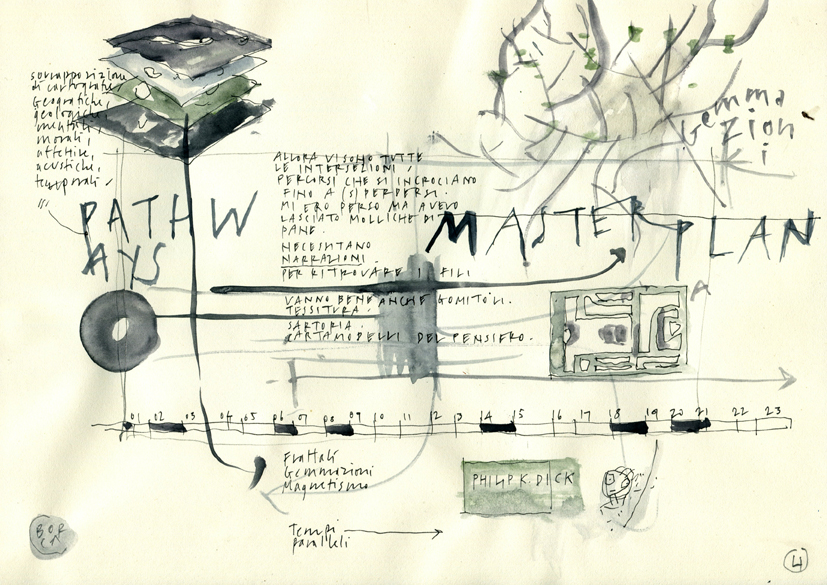 sovrapposizione
di cartografie
Geografiche,
geologiche,
mentali,
morali,
affettive,
acustiche,
temporali
PATHW
AYS
ALLORA VI SONO TUTTE
LE INTERSEZIONI,
PERCORSI CHE SI INCROCIANO
FINO A (S)PERDERSI.
MI ERO PERSO MA AVEVO
LASCIATO MOLLICHE DI
PANE.
NECESSITANO
NARRAZIONI.
PER RITROVARE I FILI
VANNO BENE ANCHE GOMITOLI.
TESSITURA.
SARTORIA.
CARTAMODELLI DEL PENSIERO.
Gemma
zion
i
MASTERPLAN
A
01 02 03 04 05 06 07 08 09 10 11 12 13 14 15 16 17 18 19 20 21 22 23
Frattali
Gemmazioni
Magnetismo
PHILIP K. DICK
Tempi
paralleli
4